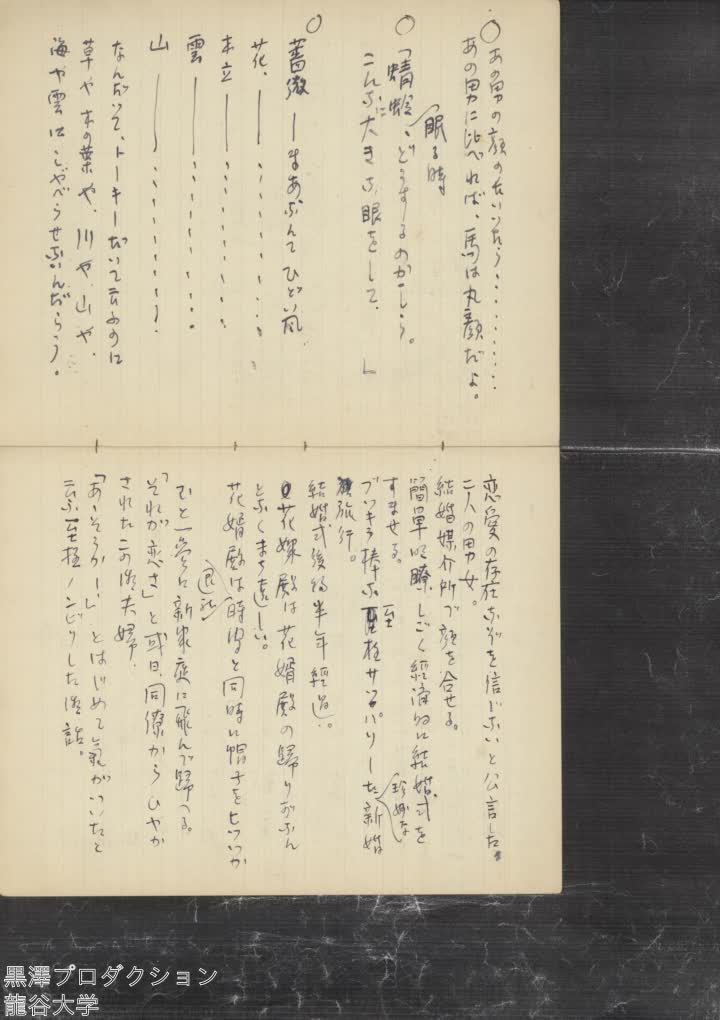 ○あの男の顔の
あの男に比べれば、馬は丸顔だよ。
○「蜻蛉、どうするのかしら。
眠る時
こんなに大きな眼をして、」
○
薔微―まあなんてひどい風
花、―・・・・・・・・・
木立―・・・・・・・・
雲―・・・・・・・・
山―・・・・・・・・
なんだいて、トーキーだいて云ふのに
草や木の葉や、川や、山や、
海や雲にしやべらせないんだらう。
恋愛の存在なぞを信じないと公言した
二人の男女。
結婚媒介所で顔を合せる。
簡単明瞭、しごく経済的に結婚式を
すませる。
ブッキラ棒な至極サッパリした新婚
珍妙な
旅行。
結婚式後約半年経過。
花嫁殿は花婿殿の帰りがなん
となくまち遠しい。
花婿殿は時間と同時に帽子をヒッつか
退社
むと一参に新家庭に飛んで帰へる。
「それが恋さ」と或日、同僚からひやか
されたこの御夫婦、
「あゝそうかー」とはじめて気がついたと
云ふ至極ノンビリした御話。
黒澤プロダクション
龍谷大学